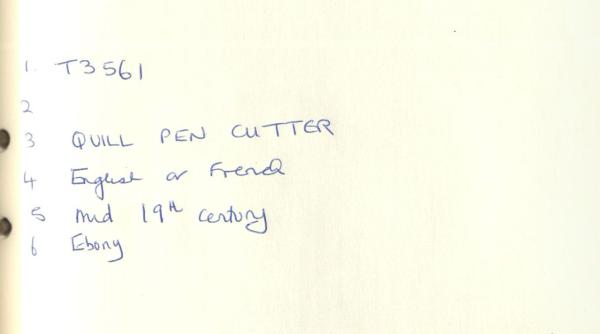 1. T3561
2
3 QUILL PEN CUTTER
4 English or French
5 mid 19th century
6 Ebony